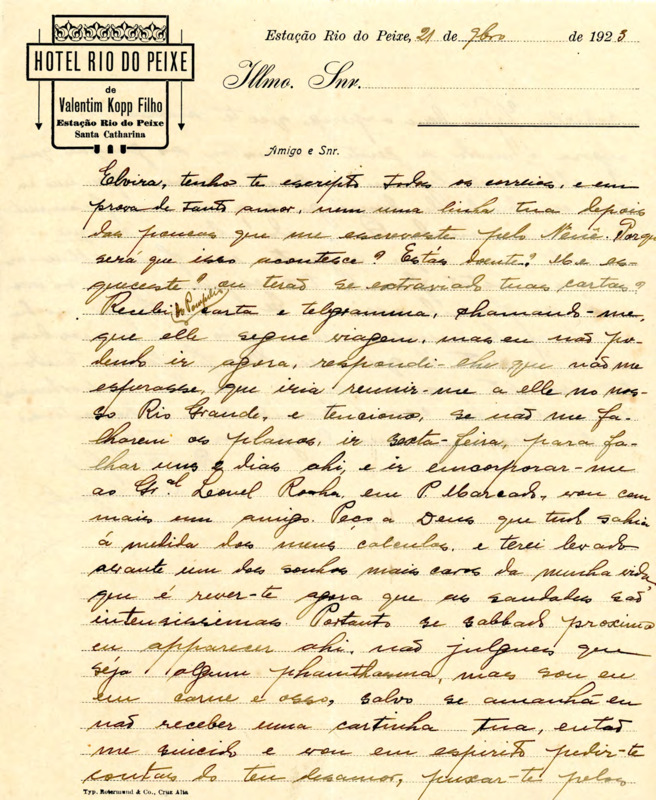 HOTEL RIO DO PEIXE
de
Valentim Kopp Filho
Estação Rio do Peixe
Santa Catharina
Estação Rio do Peixe, 21 de 9bro de 1923
Illmo. Snr.
Amigo e Snr.
Elvira, tenho te escripto todos os correios, e em
prova de tanto amor, nem uma linha tua depois
das poucas que me escreveste pelo Nenê. Porque
será que isso acontesce? Estás doente? Me es-
queceste? ou terão se extraviado tuas cartas?
do Pompilio
Recebi carta e telgramma, chamando-me,
que elle segue viagem, mas eu não po-
dendo ir agora, respondi-lhe que não me
esperasse, que iria reunir-me a elle no nos-
so Rio Grande, e tenciono, se não me fa-
lharem os planos, ir sexta-feira, para fa-
lhar uns 2 dias ahi, e ir emcorporar-me
ao Gr.al Leonel Rocha, em P. Marcado, vou com
mais um amigo. Peço a Deus que tudo sahia
á medida dos meus calculos, e terei levado
avante um dos sonhos mais caros da minha vida,
que é rever-te agora que as saudades são
intensissimas. Portanto se sabbado proximo
eu apparecer ahi, não julgues que
seja algum phanthasma, mas sou eu
em carne e osso, salvo se amanhã eu
não receber uma cartinha tua, então
me suicido e vou em espirito pedir-te
contas do teu desamor, puxar-te pelos
Typ. Rotermund & Co., Cruz Alta